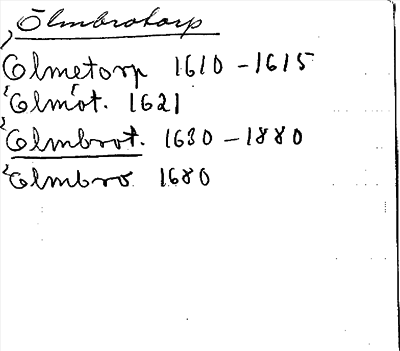 Ölmbrotorp
Ölmetorp 1610 - 1615
Ölmot. 1621
Ölmbrot. 1630 - 1880
Ölmbro 1680